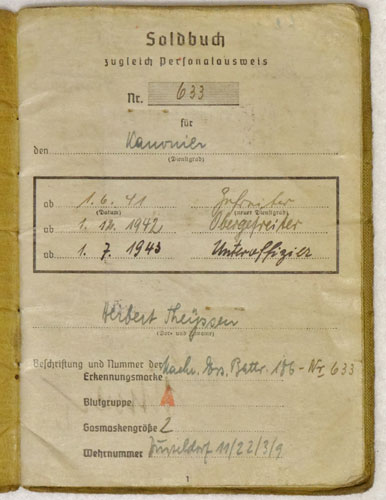 Soldbuch
zugleich Personalausweis
Nr. 633
für
den Kanonier
(Dienstgrad)
ab 1. 6. 41 Gefreiter
(Datum) (neuer Dienstgrad)
ab 1. 12. 1942 Obergefreiter
ab 1. 7. 1943 Unteroffizier
Herbert Theyssen
(Vor- und Zuname)
Beschriftung und Nummer der Nachr. Ers. Battr. 186 - Nr 633
Erkennungsmarke
Blutgruppe A
Gasmaskengröße 2
Wehrnummer Düsseldorf 11/22/3/9
1